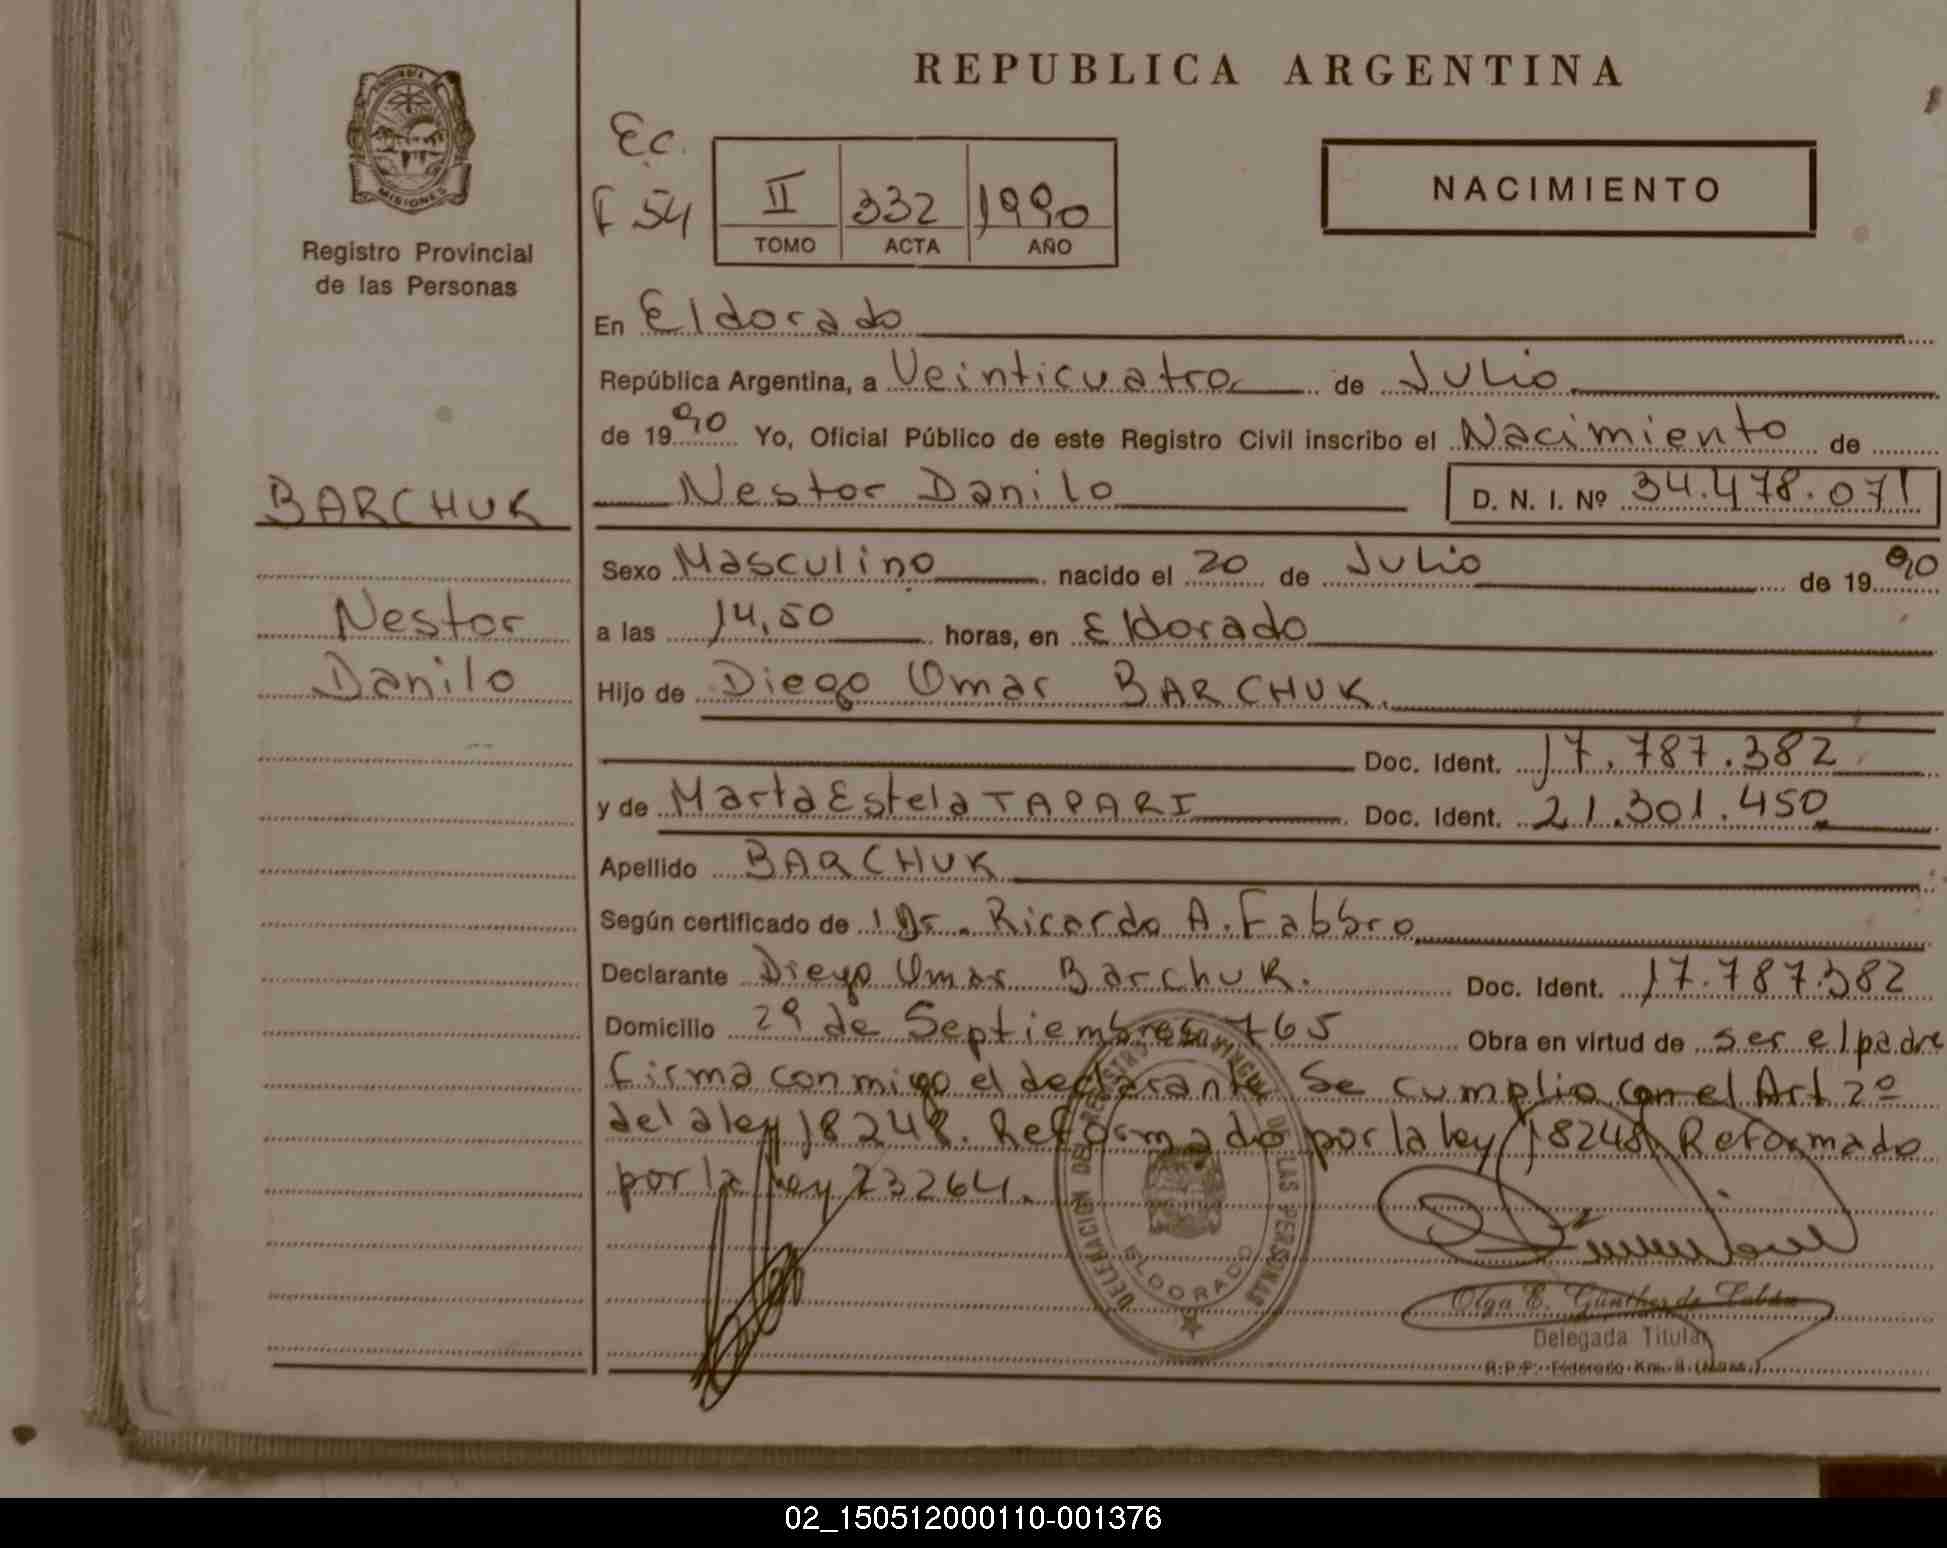 REPUBLICA ARGENTINA
MISIONES
Registro Provincial
de las Personas
E.C.
F 54
II 332 1990
TOMO ACTA AÑO
NACIMIENTO
En Eldorado
República Argentina, a Veinticuatro de Julio
de 1990 Yo, Oficial Público de este Registro Civil inscribo el Nacimiento de
BARCHUK
Nestor Danilo D. N. I. Nº 34.478.071
Sexo Masculino nacido el 20 de Julio de 1990
Nestor
a las 14,50 horas, en Eldorado
Danilo
Hijo de Diego Omar BARCHUK.
Doc. Ident. 17.787.382
y de Marta Estela TAPARI Doc. Ident. 21.301.450
Apellido BARCHUK
Según certificado de 1 Dr. Ricardo A. Fabbro
Declarante Diego Omar Barchuk. Doc. Ident. 17.787.382
Domicilio 29 de Septiembre 765 Obra en virtud de ser el padre
firma conmigo el declarante Se cumplio con el Art 2º
de la ley 18248. Reformado por la ley 18248 Reformado
por la ley 23264.
DELEGACION DEL REGISTRO PROVINCIAL DE LAS PERSONAS
ELDORADO
Olga E. Günther de
Delegada Titular
R.P.P. Eldorado Km. 
02_150512000110-001376